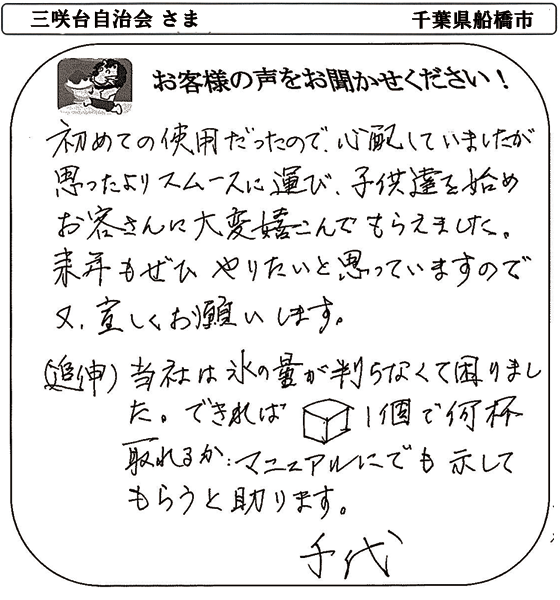 三咲台自治会 さま
千葉県船橋市
お客様の声をお聞かせください!
初めての使用だったので、心配していましたが
思ったよりスムースに運び、子供達を始め
お客さんに大変嬉こんでもらえました。
来年もぜひ やりたいと思っていますので
又、宜しくお願いします。
(追伸) 当社は氷の量が判らなくて困りまし
た。できれば 1個で何杯
取れるか、マニュアルにでも示して
もらうと助ります。
千代